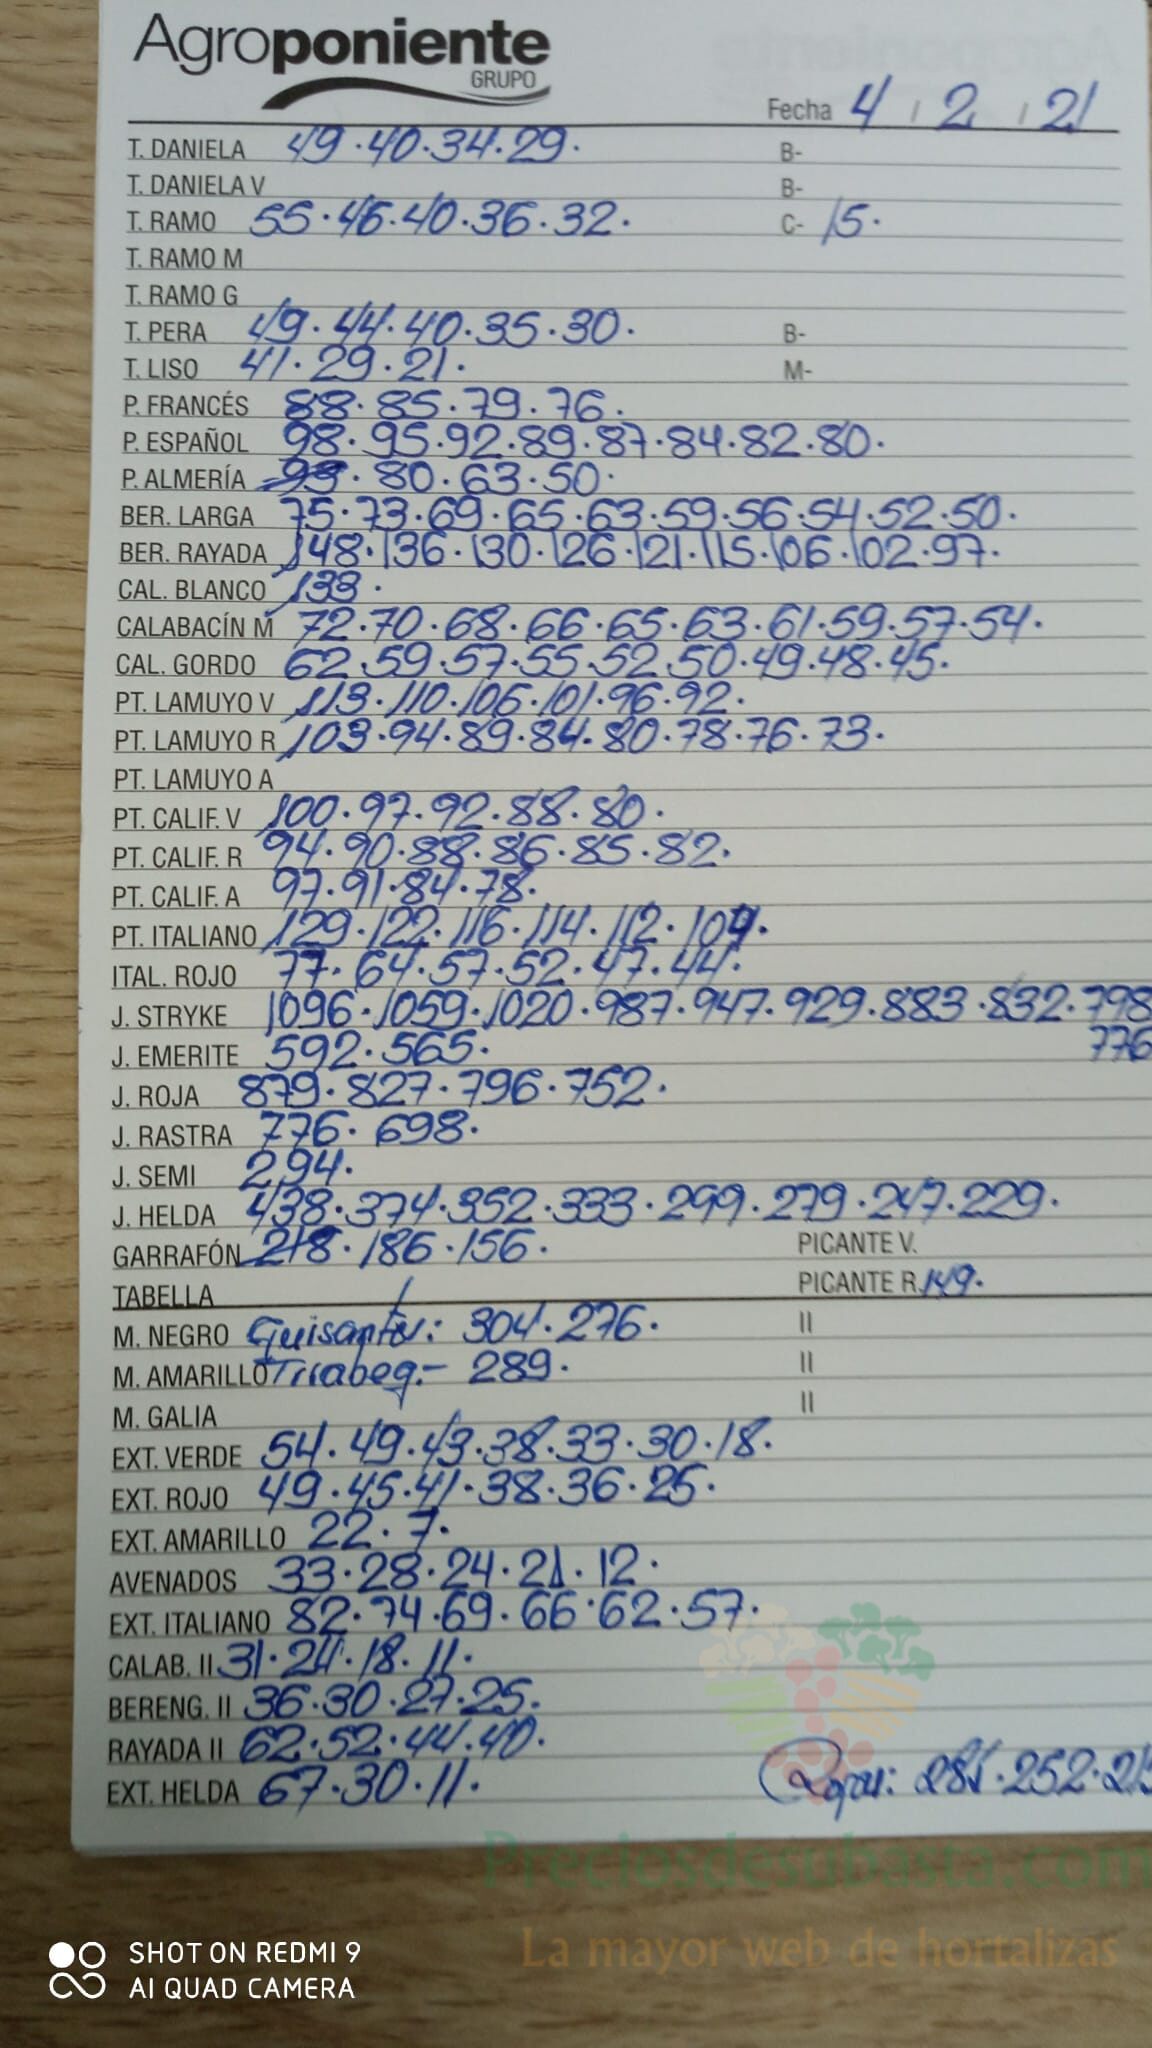 Agroponiente
GRUPO
Fecha 4 / 2 / 21
T. DANIELA 49.40.34.29. B-
T. DANIELA V B-
T. RAMO 55.46.40.36.32. C- 15.
T. RAMO M
T. RAMO G
T. PERA 49.44.40.35.30. B-
T. LISO 41.29.21. M-
P. FRANCÉS 88.85.79.76.
P. ESPAÑOL 98.95.92.89.87.84.82.80.
P. ALMERÍA 93.80.63.50.
BER. LARGA 75.73.69.65.63.59.56.54.52.50.
BER. RAYADA 148.136.130.126.121.115.106.102.97.
CAL. BLANCO 133.
CALABACÍN M 72.70.68.66.65.63.61.59.57.54.
CAL. GORDO 62.59.57.55.52.50.49.48.45.
PT. LAMUYO V 113.110.106.101.96.92.
PT. LAMUYO R 103.94.89.84.80.78.76.73.
PT. LAMUYO A
PT. CALIF. V 100.97.92.88.80.
PT. CALIF. R 94.90.88.86.85.82.
PT. CALIF. A 97.91.84.78.
PT. ITALIANO 129.122.116.114.112.109.
ITAL. ROJO 77.64.57.52.47.44.
J. STRYKE 1096.1059.1020.987.947.929.883.832.798
776
J. EMERITE 592.565.
J. ROJA 879.827.796.752.
J. RASTRA 776.698.
J. SEMI 294.
J. HELDA 438.374.352.333.299.279.247.229.
GARRAFÓN 218.186.156. PICANTE V.
TABELLA PICANTE R. 149.
M. NEGRO Guisante: 304.276. II
M. AMARILLO Tirabeq.- 289. II
M. GALIA II
EXT. VERDE 54.49.43.38.33.30.18.
EXT. ROJO 49.45.41.38.36.25.
EXT. AMARILLO 22.7.
AVENADOS 33.28.24.21.12.
EXT. ITALIANO 82.74.69.66.62.57.
CALAB. II 31.24.18.11.
BERENG. II 36.30.27.25.
RAYADA II 62.52.44.40.
EXT. HELDA 67.30.11. 281.252.
Preciosdesubasta.com
La mayor web de hortalizas
SHOT ON REDMI 9
AI QUAD CAMERA